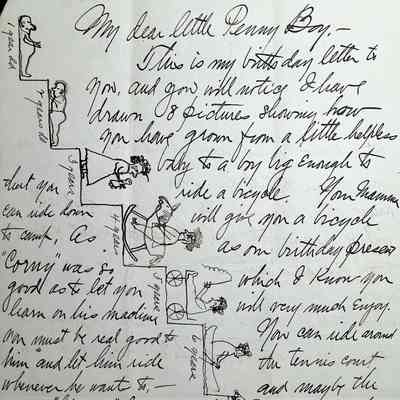 My dear little Penny Boy,-
This is my birthday letter to
you, and you will notice I have
drawn 8 pictures showing how
you have grown from a little helpless
baby to a boy big enough to
ride a bicycle. Your Mamma
will give you a bicycle
as our birthday present
which I know you
will very much enjoy.
You can ride around
the tennis court
and maybe the
that you
can ride down
to camp. As
"Corny" was so
good as to let you
learn on his machine
you must be real good to
him and let him ride
whenever he wants to,-
1 year old
2 years old
3 years
4 years
5 years
6 years